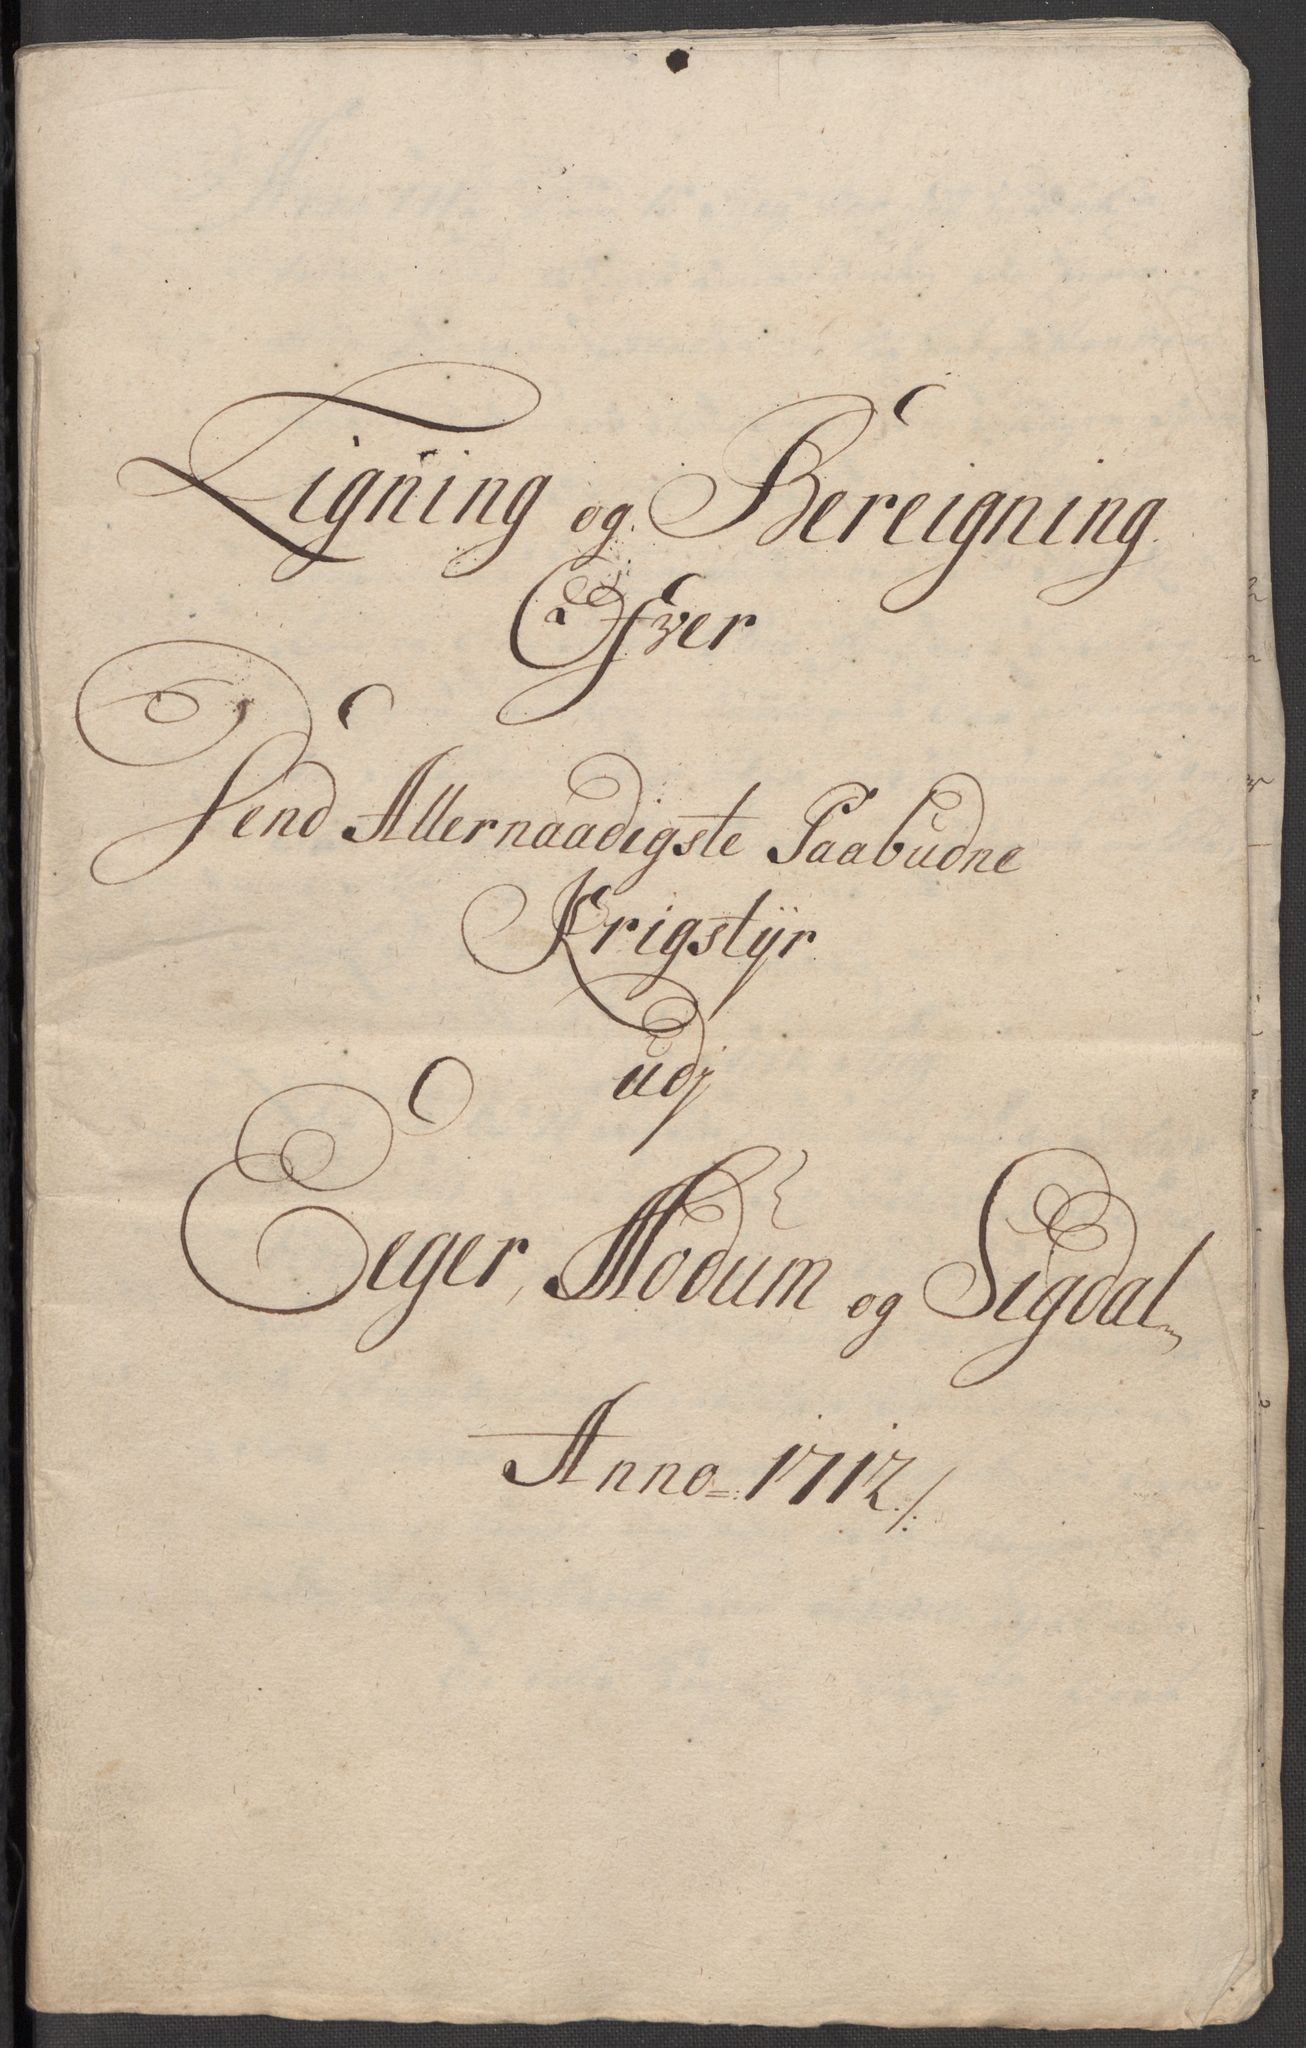 Ligning og Bereigning
Ofver
Dend Allernaadigste Paabudne
Krigstÿr
udj
Eeger, Modum og Sigdal
Anno 1712 /